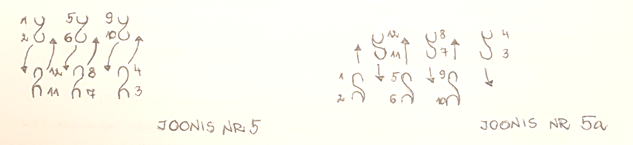 1 5 9
2 6 10
12 8 4
11 7 3
JOONIS NR 5
12 8 4
11 7 3
1 5 9
2 6 10
JOONIS NR 5a